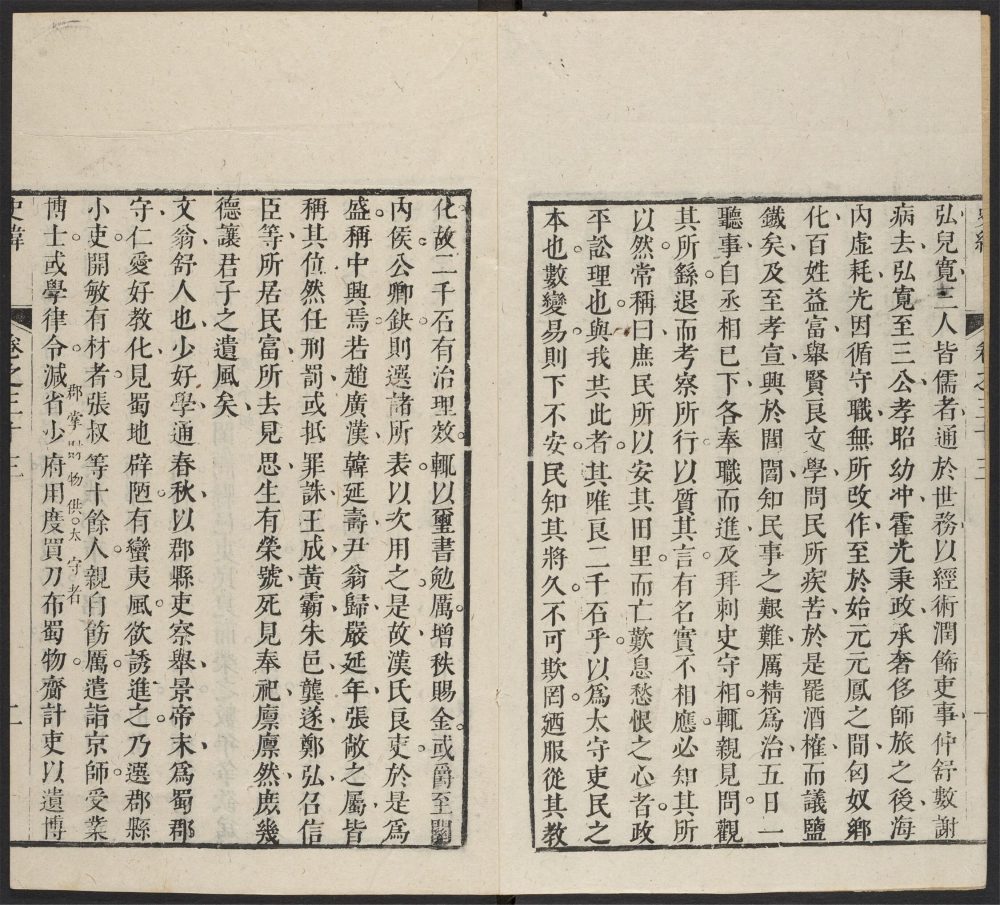 弘兒寬二人皆儒者通於世務以經術潤飾吏事仲舒數謝
病去弘寬至三公孝昭幼冲霍光秉政承奢侈師旅之後海
內虛耗光因循守職無所改作至於始元元鳳之間匈奴鄕
化百姓益富舉賢良文學問民所疾苦於是罷酒榷而議鹽
鐵矣及至孝宣興於閭閻知民事之艱難厲精爲治五日一
聽事自丞相已下各奉職而進及拜刺史守相輒親見問觀
其所繇退而考察所行以質其言有名實不相應必知其所
以然常稱曰庶民所以安其田里而亡歎息愁恨之心者政
平訟理也與我共此者其唯良二千石乎以爲太守吏民之
本也數變易則下不安民知其將久不可欺罔廼服從其教
化故二千石有治理效輒以璽書勉厲增秩賜金或爵至關
內侯公卿缺則選諸所表以次用之是故漢氏良吏於是爲
盛稱中興焉若趙廣漢韓延壽尹翁歸嚴延年張敞之屬皆
稱其位然任刑罰或抵罪誅王成黃霸朱邑龔遂鄭弘召信
臣等所居民富所去見思生有榮號死見奉祀廪廪然庶幾
德讓君子之遺風矣
文翁舒人也少好學通春秋以郡縣吏察舉景帝末爲蜀郡
守仁愛好教化見蜀地辟陋有蠻夷風欲誘進之乃選郡縣
小吏開敏有材者張叔等十餘人親自飭厲遣詣京師受業
博士或學律令減省少府用度買刀布蜀物齎計吏以遺博
郡掌財物供太守者
史緯 卷之三十三 二